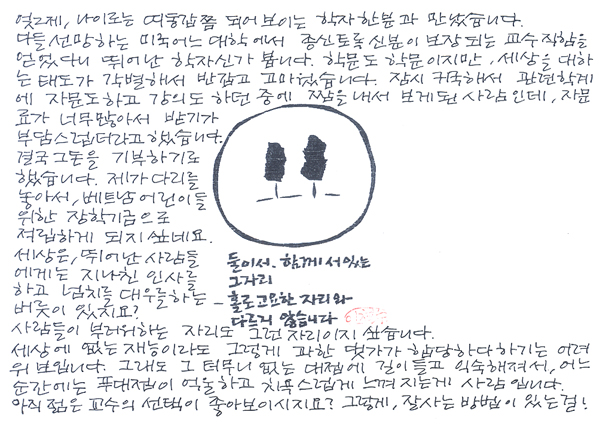 엊그제, 나이로는 여동갑쯤 되어 보이는 학자 한분과 만났습니다.
다들 선망하는 미국 어느 대학에서 종신토록 신분이 보장되는 교수직함을
얻었다니 뛰어난 학자신가 봅니다. 학문도 학문이지만, 세상을 대하
는 태도가 각별해서 반갑고 고마웠습니다. 잠시 귀국해서 관련학계
에 자문도하고 강의도 하던 중에 짬을 내서 보게된 사람인데, 자문
료가 너무많아서 받기가
부담스럽더라고했습니다.
결국 그돈을 기부하기로
했습니다. 제가 다리를
놓아서, 베트남 어린이들
위한 장학기금으로
적립하게 되지 싶네요.
세상은, 뛰어난 사람들
에게는 지나친 인사를
하고 넘치는 대우를하는
버릇이 있지요?
사람들이 부러워하는 자리도 그런 자리이지 싶습니다.
세상에 없는 재능이라도 그렇게 과한 댓가가 합당하다 하기는 어려
워 보입니다. 그래도 그 터무니 없는 대접에 길이들고 익숙해져서, 어느
순간에는 푸대접이 억울하고 치욕스럽게 느껴지는게 사람입니다.
아직 젊은 교수의 선택이 좋아보이시지요? 그렇게, 잘사는 방법이 있는걸!
둘이서. 함께 서있는
그자리
홀로 고요한 자리와
다르지 않습니다